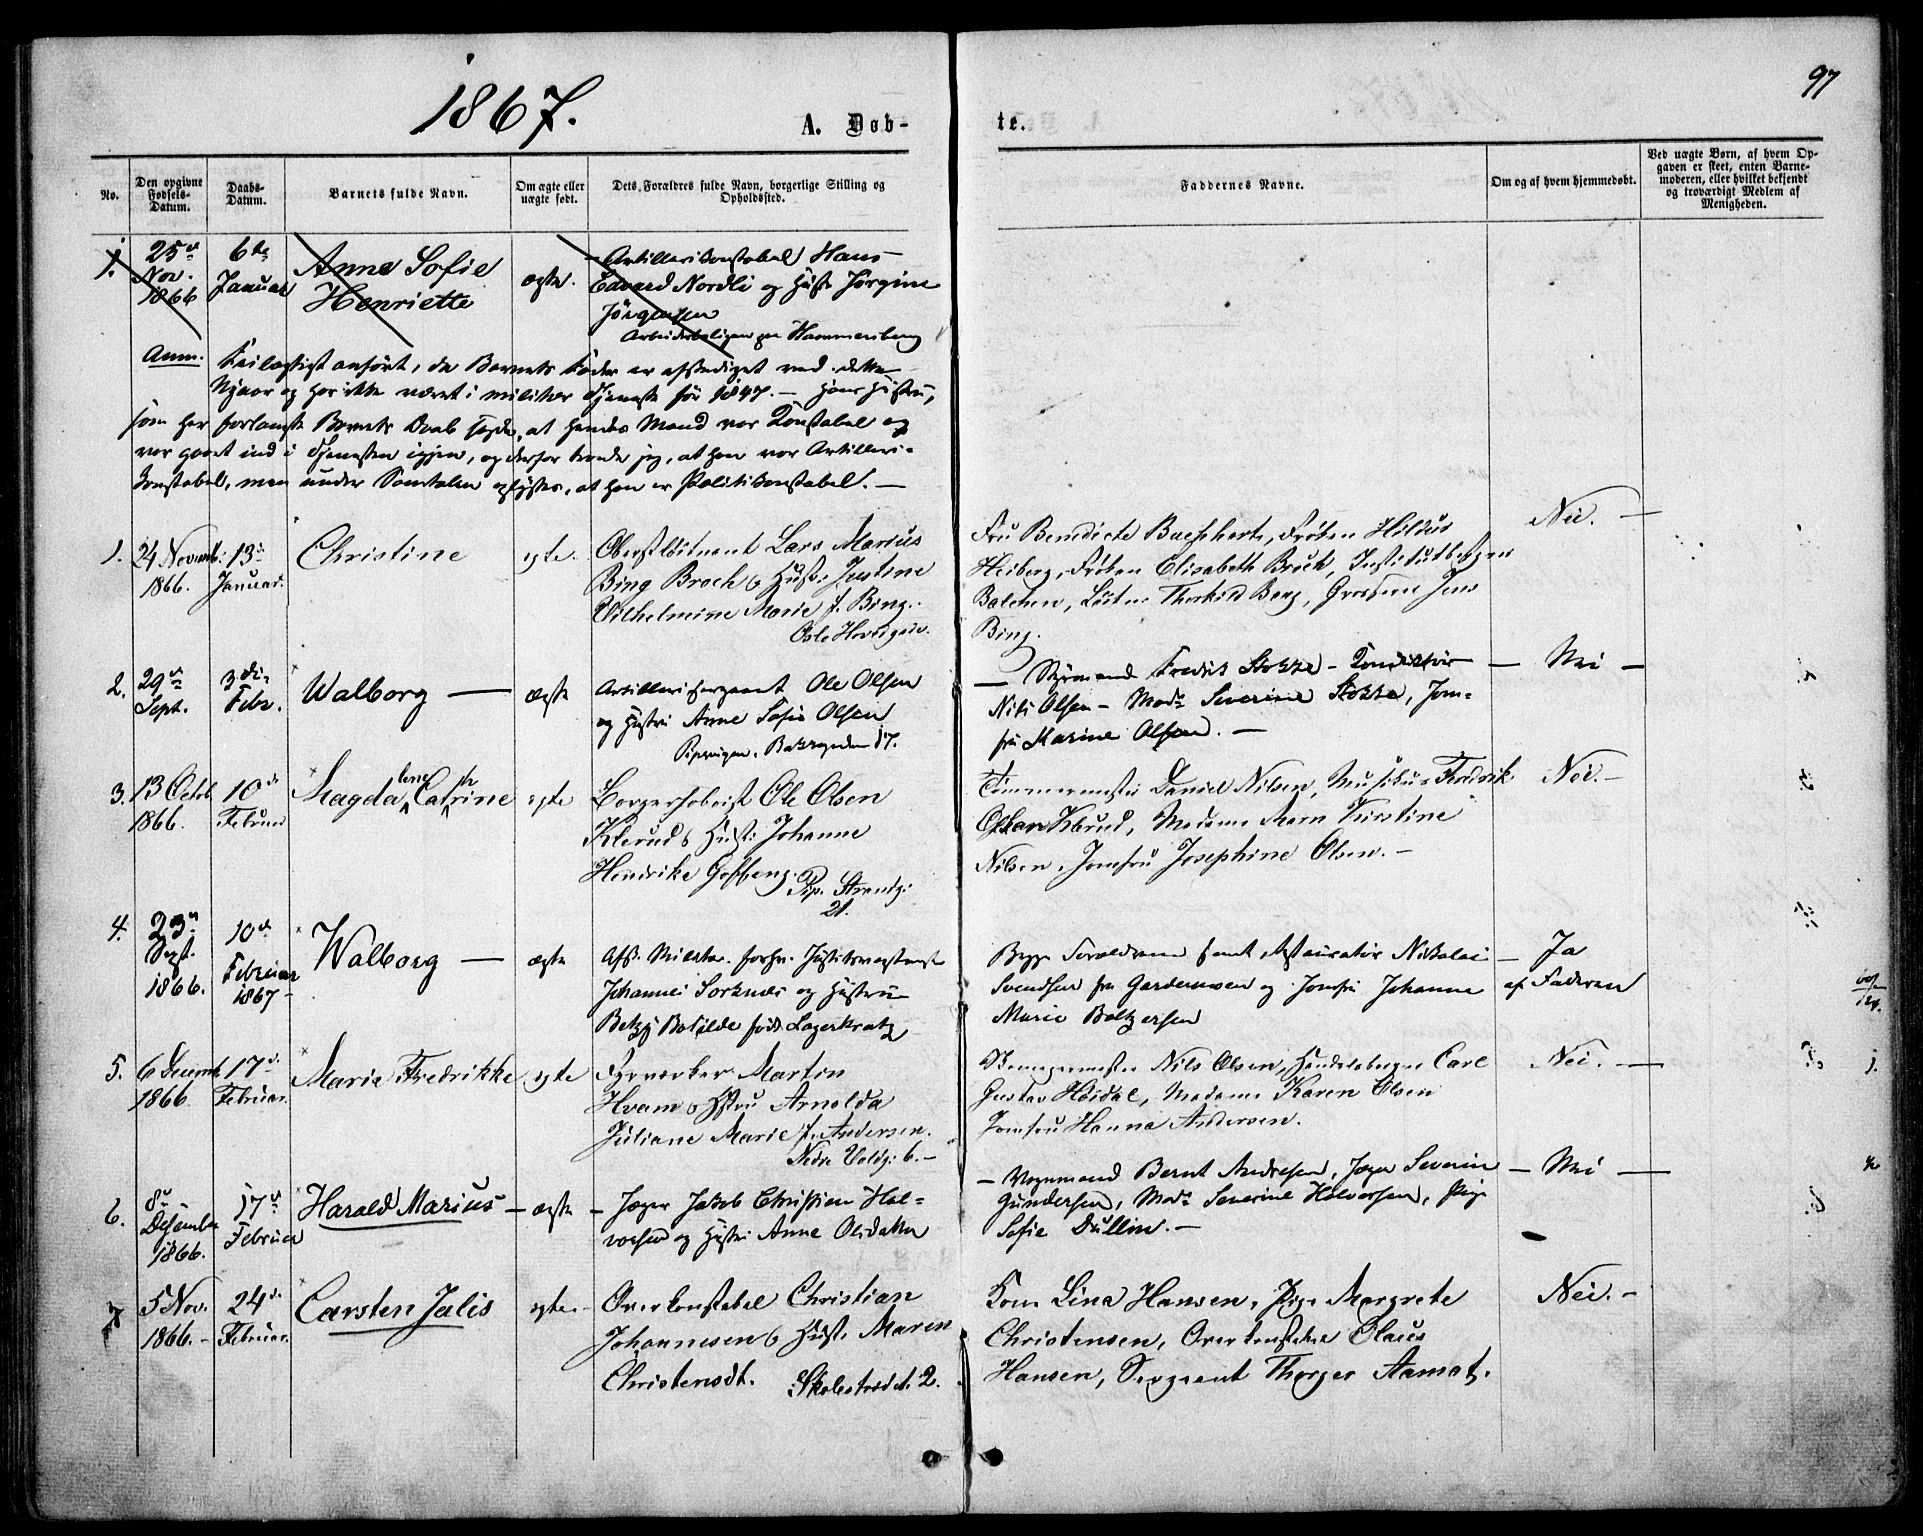 1867.
97
A. Døb-
te.
No.
Den opgivne Fødsels-Datum.
Daabs-Datum.
Barnets fulde Navn.
Om ægte eller uægte født.
Dets Forældres fulde Navn, borgerlige Stilling og Opholdssted.
Faddernes Navne.
Om og af hvem hjemmedøbt.
Ved uægte Børn, af hvem Opgaven er skeet, enten Barnemoderen, eller hvilket bekjendt og troværdigt Medlem af Menigheden.
1.
25 Nov. 1866
6te Januar
Anne Sofie
Henriette
ægte.
Artillerikonstabel Hans
Edvard Nordli og Hustr Jørgine
Jörgensen
Arbeiderboligen paa Hammersborg
Anm. Feilagtigt anført, da Barnets Fader er afskediget ved dette
og har ikke været i militær Tjeneste før 1847. — Hans Hustru,
som her forlangte Barnets Daab sagde, at hendes Mand var Konstabel og
var gaaet ind i Tjenesten igjen, og derfor troede jeg, at han var Artilleri-
konstabel, men under Samtalen oplystes, at han er Politikonstabel. —
1.
24 Novemb. 1866.
13 Januar.
Christine
egte.
Oberstlöitnant Lars Marius
Bing Broch o Hust: Justine
Wilhelmine Marie f. Bing.
Oslo
Fru Benedicte Frøken Hildur
Heiberg, Frøken Elisabeth Brock,
Balchen, Berg, Jens
Bing.
Nei. —
2.
29 Sept.
3die Febr.
Walborg —
ægte
Artillerisergeant Ole Olsen
og Hustru Anne Sofie Olsen
Pipervigen, 17.
— Styrmand Fredrik Stokke – Konduktør
Nils Olsen – Mad: Severine Stokke, Jom-
fru Marine Olsen. —
— Nei —
3.
13 Octob 1866.
10 Februar
Magdalene Cathrine
egte
Ole Olsen
Klerud o Hust: Johanne
Hendrikke
Pip. Strandg:
21.
Tömmermester Daniel Nilsen, Musikus Fredrik
Oskar Klerud, Madame Maren Kirstine
Nilsen, Jomfru Josephine Olsen. —
Nei. —
4.
23 Sept. 1866.
10 Februar 1867 –
Walborg —
ægte
Afsk. Militær. forhv.
Johannes Sorknæs og Hustru
Betzy Botilde född Lagerkrantz
Begge Forældrene samt Restauratør Nikolai
Svendsen fra Gardermoen og Jomfru Johanne
Marie Baltzersen
— Ja
af Faderen
5.
6 Decemb. 1866
17 Februar.
Marie Fredrikke
egte
Fyrværker Martin
Hvam o Hstru Arnolda
Juliane Marie f. Andersen.
Nedre Voldg: 6. —
Nils Olsen, Handelsborger Carl
Gustav Höidal, Madame Karen Olsen
Jomfru Hanna Andersen.
Nei. —
6.
8 Desember 1866.
17 Februar
Harald Marius —
ægte
— Jæger Jakob Christian Hal-
vorsen og Hustru Anne Olsdatter
— Vognmand Bernt Andresen, Jæger Severin
Gundersen, Mad: Severine Halvorsen, Pige
Sofie Dullin. —
— Nei —
7
5 Nov. 1866. –
24 Februar.
Carsten Julis
egte.
Overkonstabel Christian
Johannesen o Hust: Maren
Christensdt. Skolestrædet. 2.
Kone Lina Hansen, Pige Margrete
Christensen, Overkonstabel Olaus
Hansen, Sergeant Thorger Aamot.
Nei. –